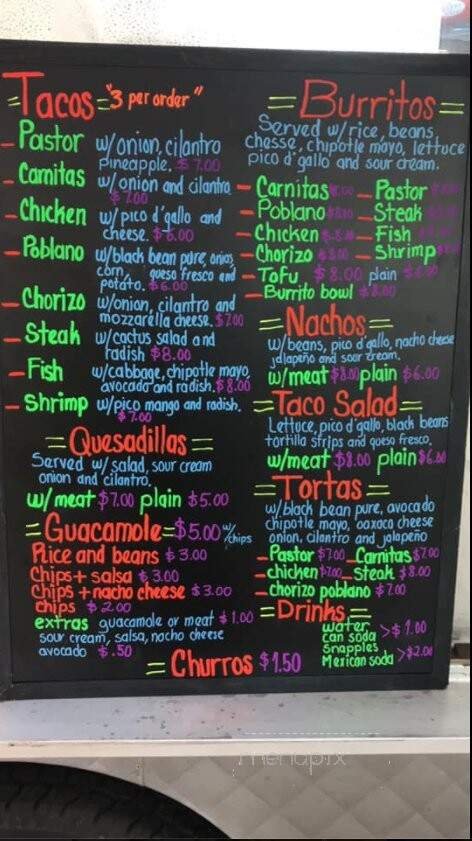 Tacos "3 per order"
Pastor w/onion, cilantro
pineapple. $7.00
Carnitas w/onion and cilantro
$7.00
Chicken w/pico d'gallo and
cheese. $6.00
Poblano w/black bean pure, onion
corn, queso fresco and
potato. $6.00
Chorizo w/onion, cilantro and
mozzarella cheese. $7.00
Steak w/cactus salad and
radish $8.00
Fish w/cabbage, chipotle mayo,
avocado and radish. $8.00
Shrimp w/pico mango and radish.
$7.00
Quesadillas
Served w/salad, sour cream
onion and cilantro.
w/meat $7.00 plain $5.00
Guacamole $5.00 w/chips
Rice and beans $3.00
Chips + salsa $3.00
Chips + nacho cheese $3.00
chips $2.00
extras guacamole or meat $1.00
sour cream, salsa, nacho cheese
avocado $.50
Churros $1.50
Burritos
Served w/rice, beans,
chesse, chipotle mayo, lettuce
pico d'gallo and sour cream.
Carnitas Pastor
Poblano Steak
Chicken Fish
Chorizo Shrimp
Tofu $8.00 plain
Burrito bowl $8.00
Nachos
w/beans, pico d'gallo, nacho cheese
jalapeño and sour cream.
w/meat $8.00 plain $6.00
Taco Salad
Lettuce, pico d'gallo, black beans
tortilla strips and queso fresco.
w/meat $8.00 plain $6.00
Tortas
w/black bean pure, avocado
chipotle mayo, oaxaca cheese
onion, cilantro and jalapeño
Pastor $7.00 Carnitas $7.00
chicken $7.00 Steak $8.00
chorizo poblano $7.00
Drinks
water
can soda > $1.00
Snapples
Mexican soda > $2.00
menupix